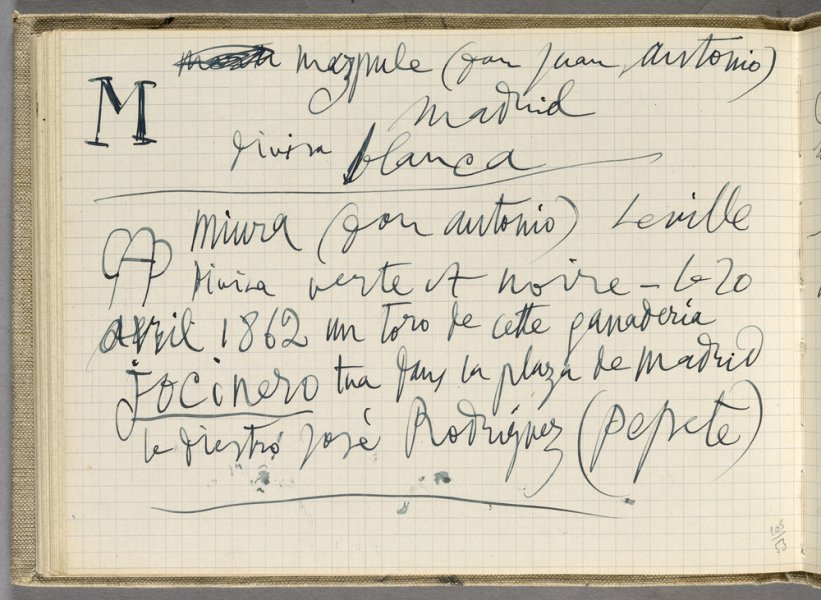 M mazpule (don Juan antonio)
madrid
divisa blanca
miura (don antonio) Seville
divisa verte et noire - le 20
avril 1862 un toro de cette ganaderia
Jocinero tua dans la plaza de madrid
le diestro José Rodriguez (pepete)
205
53